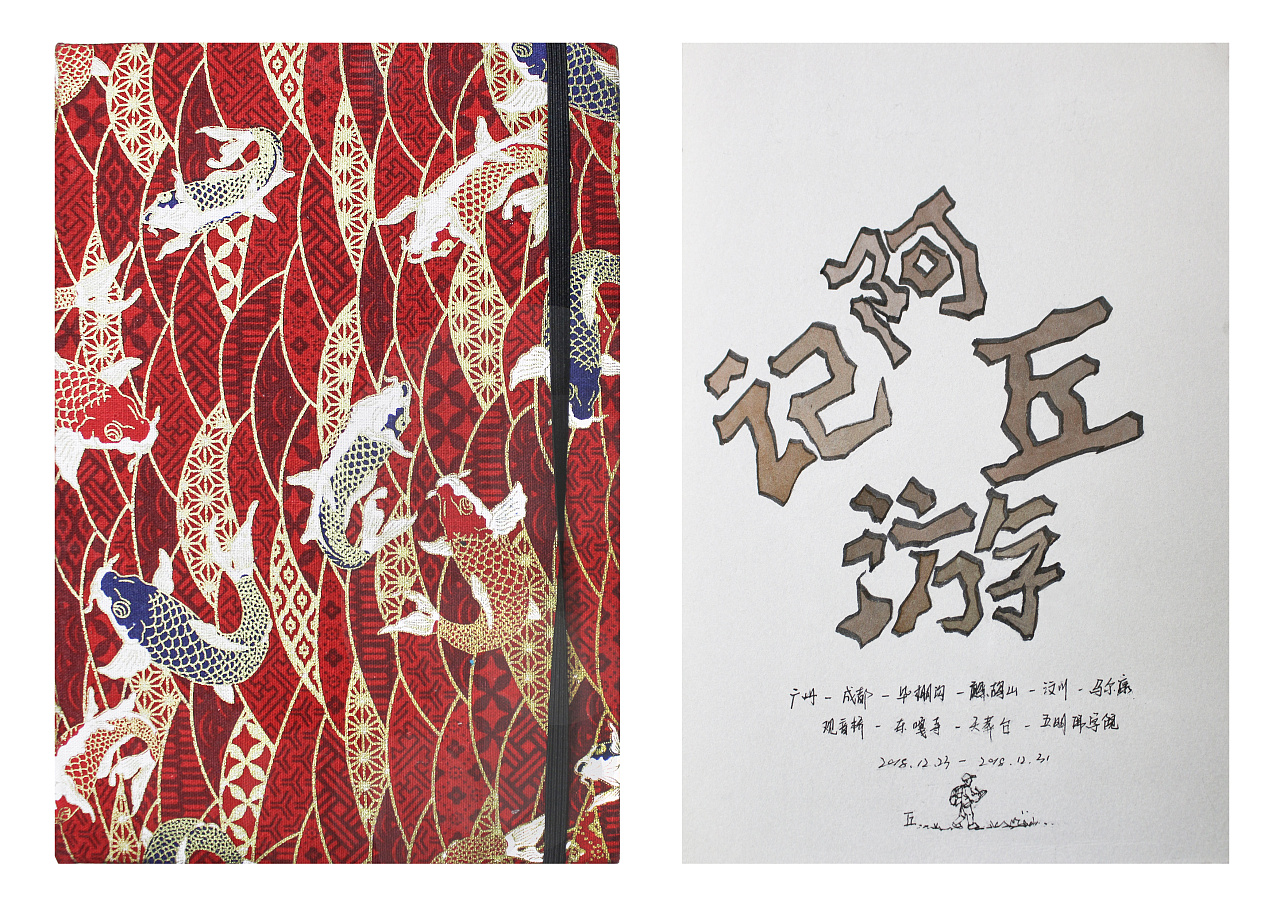 阿丘游记
广州 - 成都 - 毕棚沟 - 鹧鸪山 - 汶川 - 马尔康
观音桥 - 东嘎寺 - 天葬台 - 五明佛学院
2018.12.23 - 2018.12.31
丘